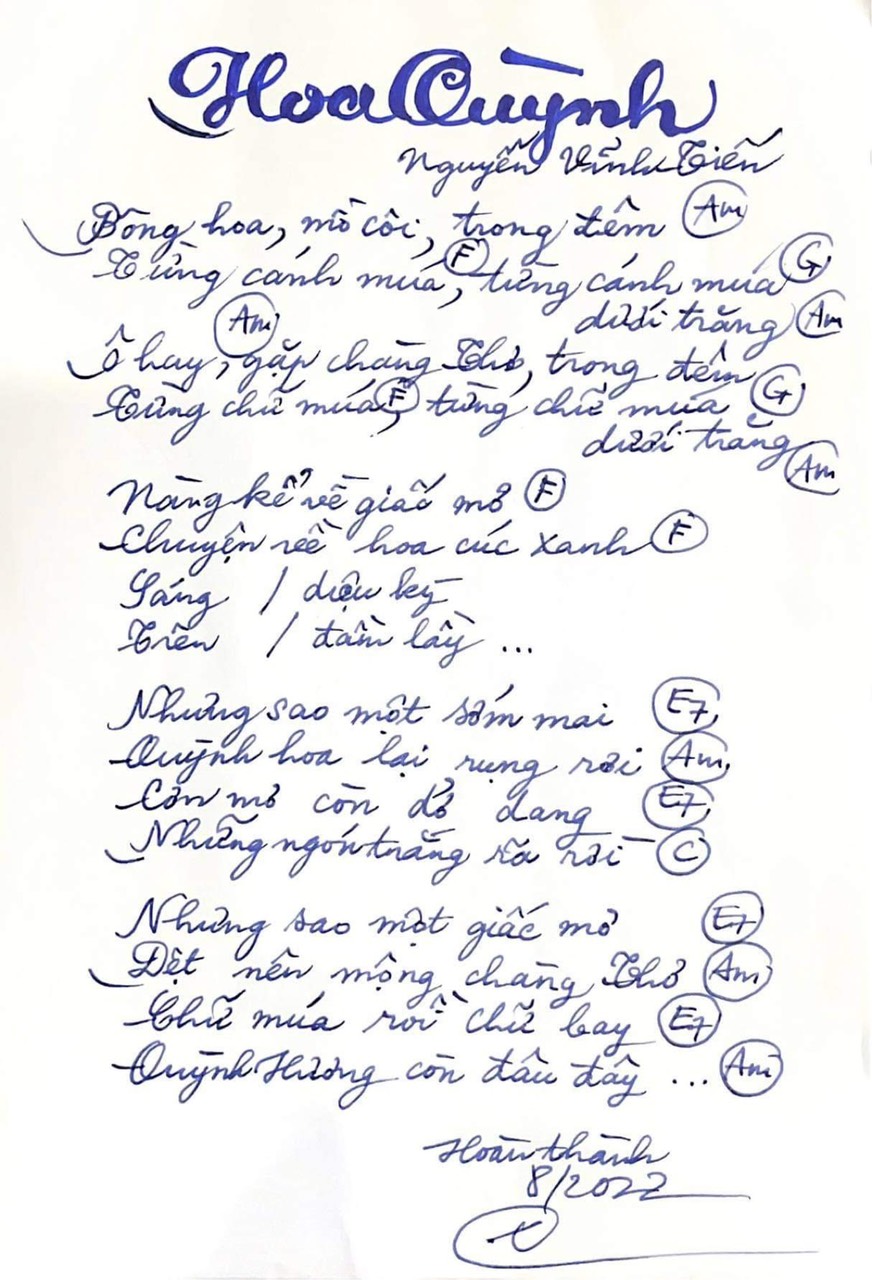 Hoa Quỳnh
Nguyễn Vĩnh Tiến
Bông hoa, mồ côi, trong đêm (Am)
Từng cánh múa (F), từng cánh múa (G)
dưới trăng (Am)
(Am)
Ô hay, gặp chàng Thơ, trong đêm
Từng chữ múa (F), từng chữ múa (G)
dưới trăng (Am)
Nàng kể về giấc mơ (F)
Chuyện về hoa cúc xanh (F)
Sáng / diệu kỳ
Trên / đầm lầy ...
Nhưng sao một sớm mai (E7)
Quỳnh hoa lại rụng rời (Am)
Cơn mơ còn dở dang (E7)
Những ngón trăng rã rời (C)
Nhưng sao một giấc mơ (E7)
Dệt nên mộng chàng Thơ (Am)
Chữ múa rồi chữ bay (E7)
Quỳnh Hương còn đâu đây ... (Am)
Hoàn thành
8/2022